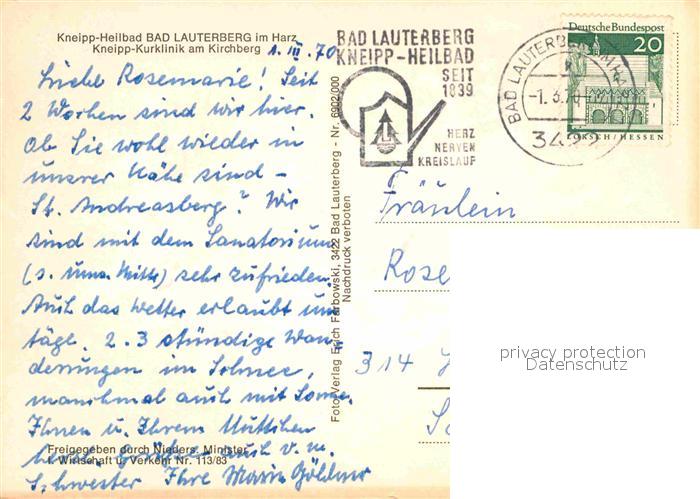 Kneipp-Heilbad BAD LAUTERBERG im Harz
Kneipp-Kurklinik am Kirchberg
1. III. 70
Liebe Rosemarie! Seit
2 Wochen sind wir hier.
Ob Sie wohl wieder in
unsrer Nähe sind -
St. Andreasberg? Wir
sind mit dem Sanatorium
(s. Mitte) sehr zufrieden.
Auch das Wetter erlaubt uns
tägl. 2-3 stündige Wan
derungen im Schnee,
manchmal auch mit Sonne.
Ihnen u. Ihrem Muttchen
Grüße auch v. m.
Schwester Ihre
Freigegeben durch Nieders. Minister
f. Wirtschaft u. Verkehr Nr. 113/83
Foto-Verlag Erich Farbowski, 3422 Bad Lauterberg - Nr. 6902/000
Nachdruck verboten
BAD LAUTERBERG
KNEIPP-HEILBAD
SEIT
1839
HERZ
NERVEN
KREISLAUF
BAD LAUTERBERG
-1.3.70
3422
Deutsche Bundespost
20
LORSCH/HESSEN
Fräulein
Rose
314
privacy protection
Datenschutz